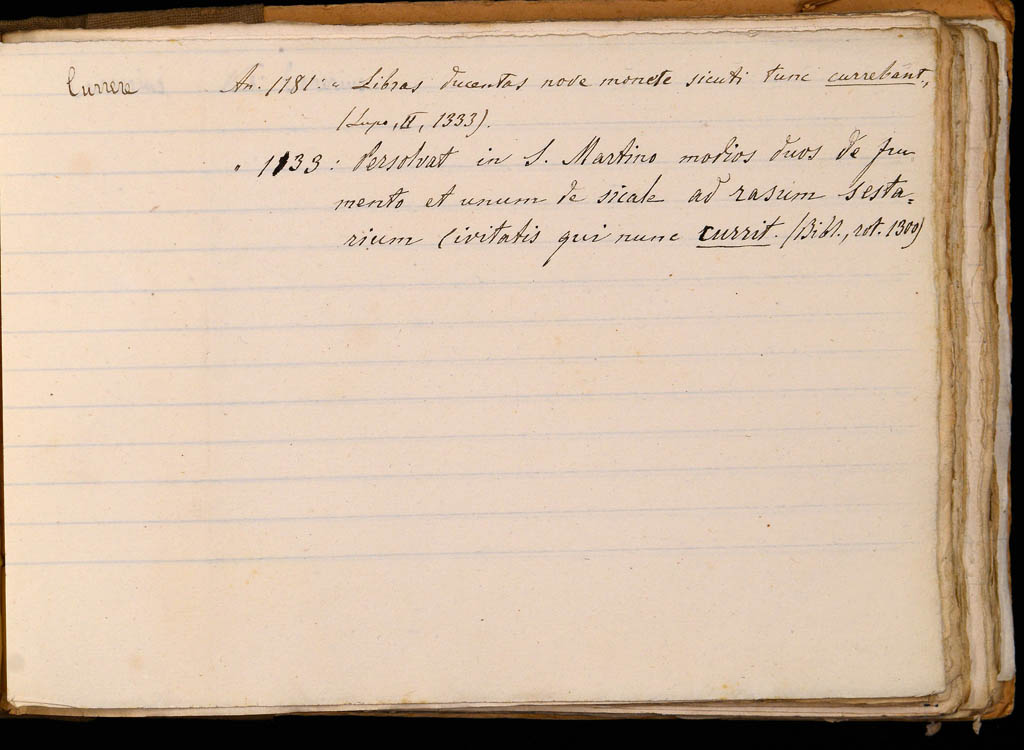 Currere An. 1181: „ Libras ducentas nove monete sicuti tunc currebant,,
(Lupo, II, 1333).
" 1133: Persolvat in S. Martino modios duos de fru
mento et unum de sicale ad rasum sesta=
rium Civitatis qui nunc currit. (Bibl., rot. 1300)